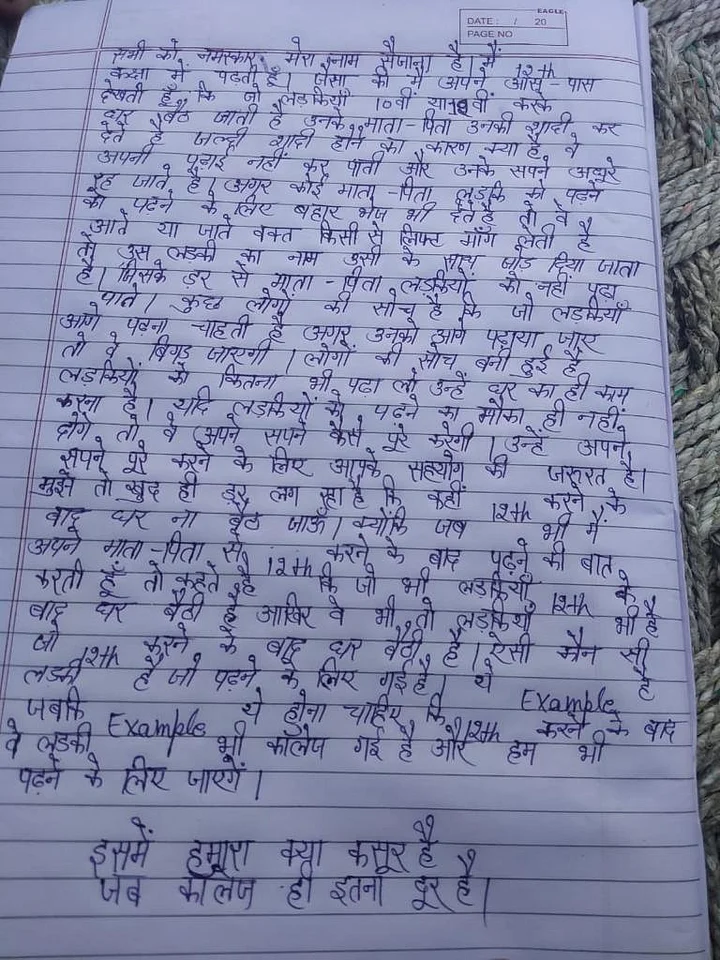 EAGLE
DATE: / 20
PAGE NO
सभी को नमस्कार मेरा नाम सैजाना है। मैं 12th
कक्षा में पढ़ती हूँ। जैसा की मैं अपने आस-पास
देखती हूँ कि जो लड़कियाँ 10वीं या 12वीं करके
घर बैठ जाती है उनके माता-पिता उनकी शादी कर
देते है जल्दी शादी होने का कारण क्या है वे
अपनी पढ़ाई नहीं कर पाती और उनके सपने अधूरे
रह जाते है। अगर कोई माता-पिता लड़कि को पढ़ने
को पढ़ने के लिए बहार भेज भी देते है तो वे
आते या जाते वक्त किसी से लिफ्ट माँग लेती है
तो उस लड़की का नाम उसी के साथ जोड़ दिया जाता
है। जिसके डर से माता-पिता लड़कियों को नहीं पढ़ा
पाते। कुछ लोगों की सोच है कि जो लड़कियाँ
आगे पढ़ना चाहती है अगर उनको आगे पढ़ाया जाए
तो वे बिगड़ जाएगी। लोगों की सोच बनी हुई है
लड़कियों को कितना भी पढा लो उन्हें घर का ही काम
करना है। यदि लड़कियों को पढ़ने का मौका ही नहीं
दोगे तो वे अपने सपने कैसे पूरे करेगी। उन्हें अपने
सपने पूरे करने के लिए आपके सहयोग की जरूरत है।
मुझे तो खुद ही डर लग रहा है कि कहीं 12th करने के
बाद घर ना बैठ जाऊँ। क्योंकि जब भी मैं
अपने माता-पिता से 12th करने के बाद पढ़ने की बात
करती हूँ तो कहते है कि जो भी लड़कियाँ 12th के
बाद घर बैठी है आखिर वे भी तो लड़कियाँ भी है
जो 12th करने के बाद घर बैठी है। ऐसी कौन सी
लड़की है जो पढ़ने के लिए गई है। ये Example है
जबकि Example ये होना चाहिए कि 12th करने के बाद
वे लड़की भी कॉलेज गई है और हम भी
पढ़ने के लिए जाएगें।
इसमें हमारा क्या कसूर है
जब कॉलेज ही इतना दूर है।